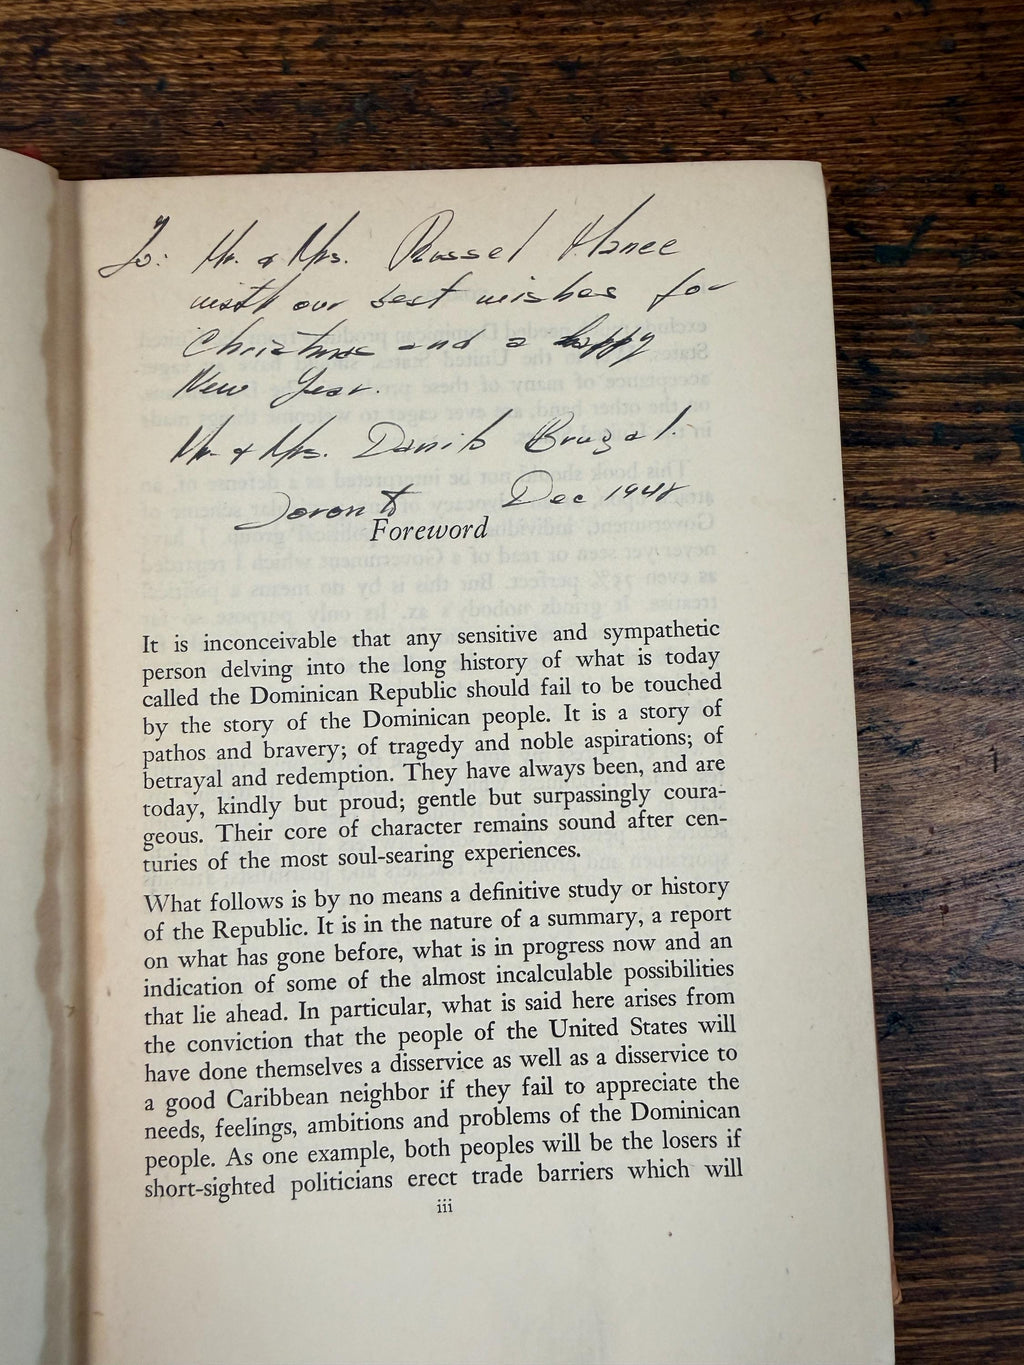 To: Mr. & Mrs. Russel Hanee
with our best wishes for
Christmas and a happy
New Year.
Mr. & Mrs. Danilo Brugal.
Toronto Dec 1948
Foreword
It is inconceivable that any sensitive and sympathetic
person delving into the long history of what is today
called the Dominican Republic should fail to be touched
by the story of the Dominican people. It is a story of
pathos and bravery; of tragedy and noble aspirations; of
betrayal and redemption. They have always been, and are
today, kindly but proud; gentle but surpassingly coura-
geous. Their core of character remains sound after cen-
turies of the most soul-searing experiences.
What follows is by no means a definitive study or history
of the Republic. It is in the nature of a summary, a report
on what has gone before, what is in progress now and an
indication of some of the almost incalculable possibilities
that lie ahead. In particular, what is said here arises from
the conviction that the people of the United States will
have done themselves a disservice as well as a disservice to
a good Caribbean neighbor if they fail to appreciate the
needs, feelings, ambitions and problems of the Dominican
people. As one example, both peoples will be the losers if
short-sighted politicians erect trade barriers which will
iii